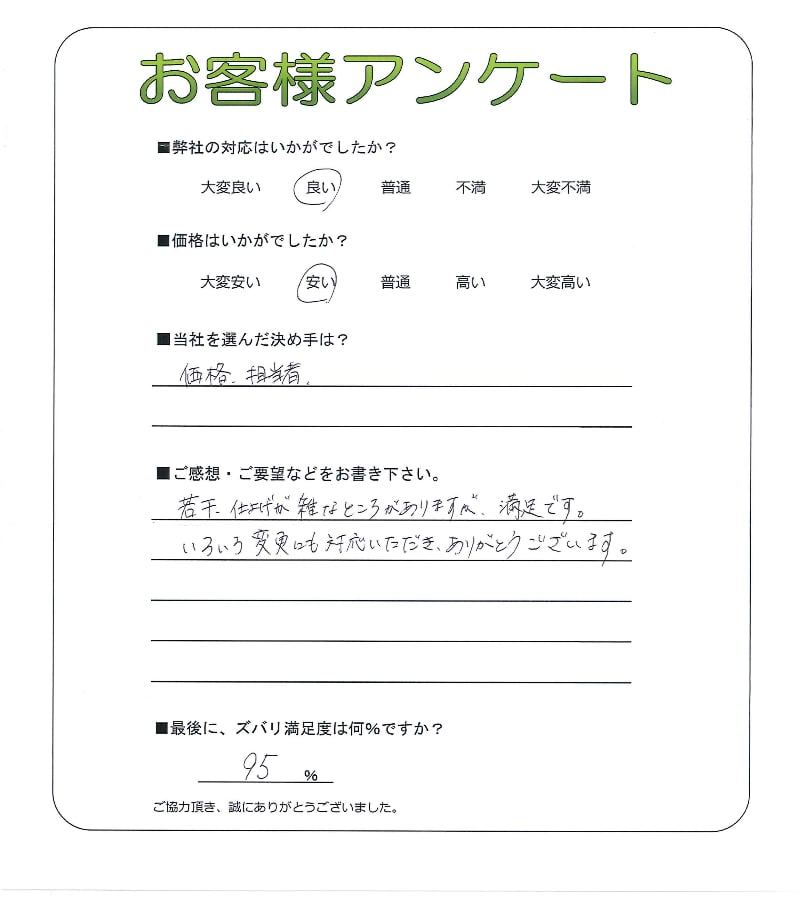 お客様アンケート
■弊社の対応はいかがでしたか？
大変良い 良い 普通 不満 大変不満
■価格はいかがでしたか？
大変安い 安い 普通 高い 大変高い
■当社を選んだ決め手は？
価格、担当者、
■ご感想・ご要望などをお書き下さい。
若干、仕上げが雑なところがありますが、満足です。
いろいろ変更にも対応いただき、ありがとうございます。
■最後に、ズバリ満足度は何%ですか？
95 %
ご協力頂き、誠にありがとうございました。